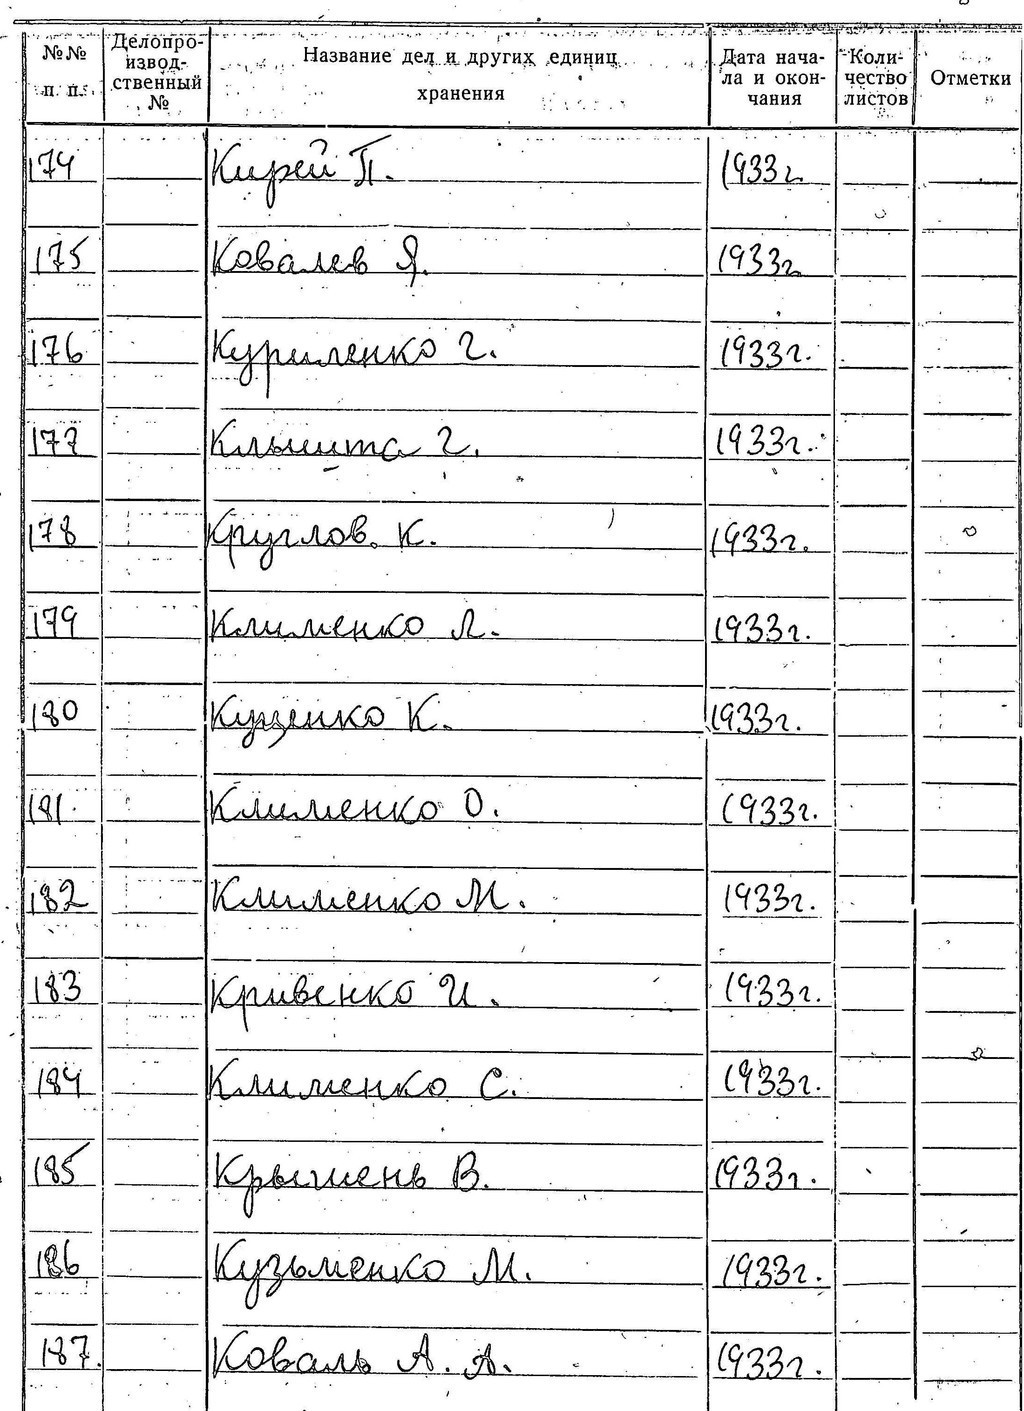 №№ п. п. Делопроизводственный № Название дел и других единиц хранения Дата начала и окончания Количество листов Отметки
174 Кирей П. 1933г
175 Ковалев Я. 1933г
176 Куриленко Г. 1933г.
177 Г. 1933г.
178 Круглов. К. 1933г.
179 Клименко Л. 1933г.
180 Куценко К. 1933г.
181. Клименко О. 1933г.
182 Клименко М. 1933г.
183 Кривенко И. 1933г.
184 Клименко С. 1933г.
185 В. 1933г.
186 Кузьменко М. 1933г.
187. Коваль А. А. 1933г.